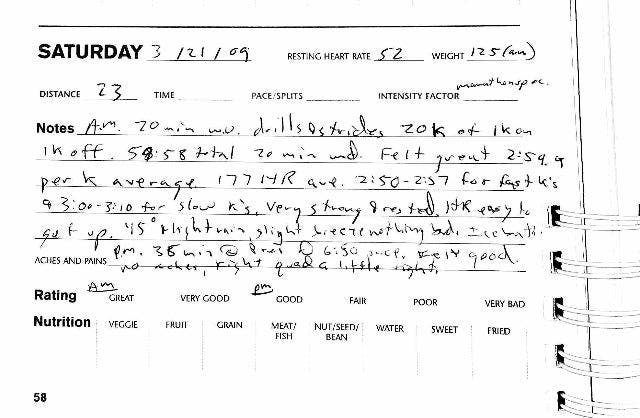 SATURDAY 3 / 21 / 09 RESTING HEART RATE 52 WEIGHT 125 (am)
DISTANCE 23 TIME PACE/SPLITS INTENSITY FACTOR
Notes A.M. 20 min w.u. drills & strides 20K of 1K on
1K off. 58:58 total 20 min wd. Felt great 2:59.9
per K average. 177 HR ave. 2:50-2:57 for fast K's
& 3:00-3:10 for slow K's. Very strong & rested. HR easy to
get up. 45° slight rain, slight breeze nothing bad.
p.m. 38 min @ 6:50 pace. Felt good.
ACHES AND PAINS no aches, right quad a little tight.
Am pm
Rating GREAT VERY GOOD GOOD FAIR POOR VERY BAD
Nutrition VEGGIE FRUIT GRAIN MEAT/ FISH NUT/SEED/ BEAN WATER SWEET FRIED
58